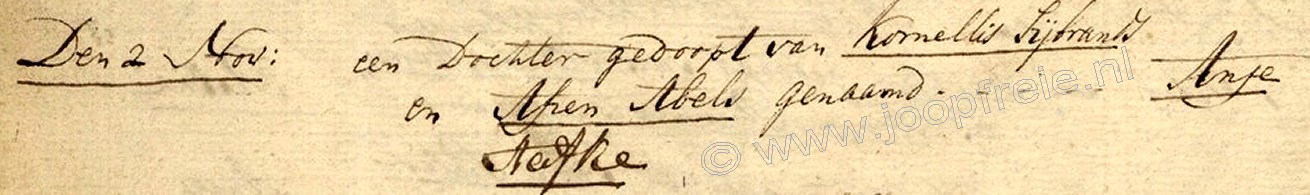 Den 2 Nov: een Dochter gedoopt van Kornellis Sijbrands
en Afien Abels genaamd - - - - Anje
© www.joopfreie.nl